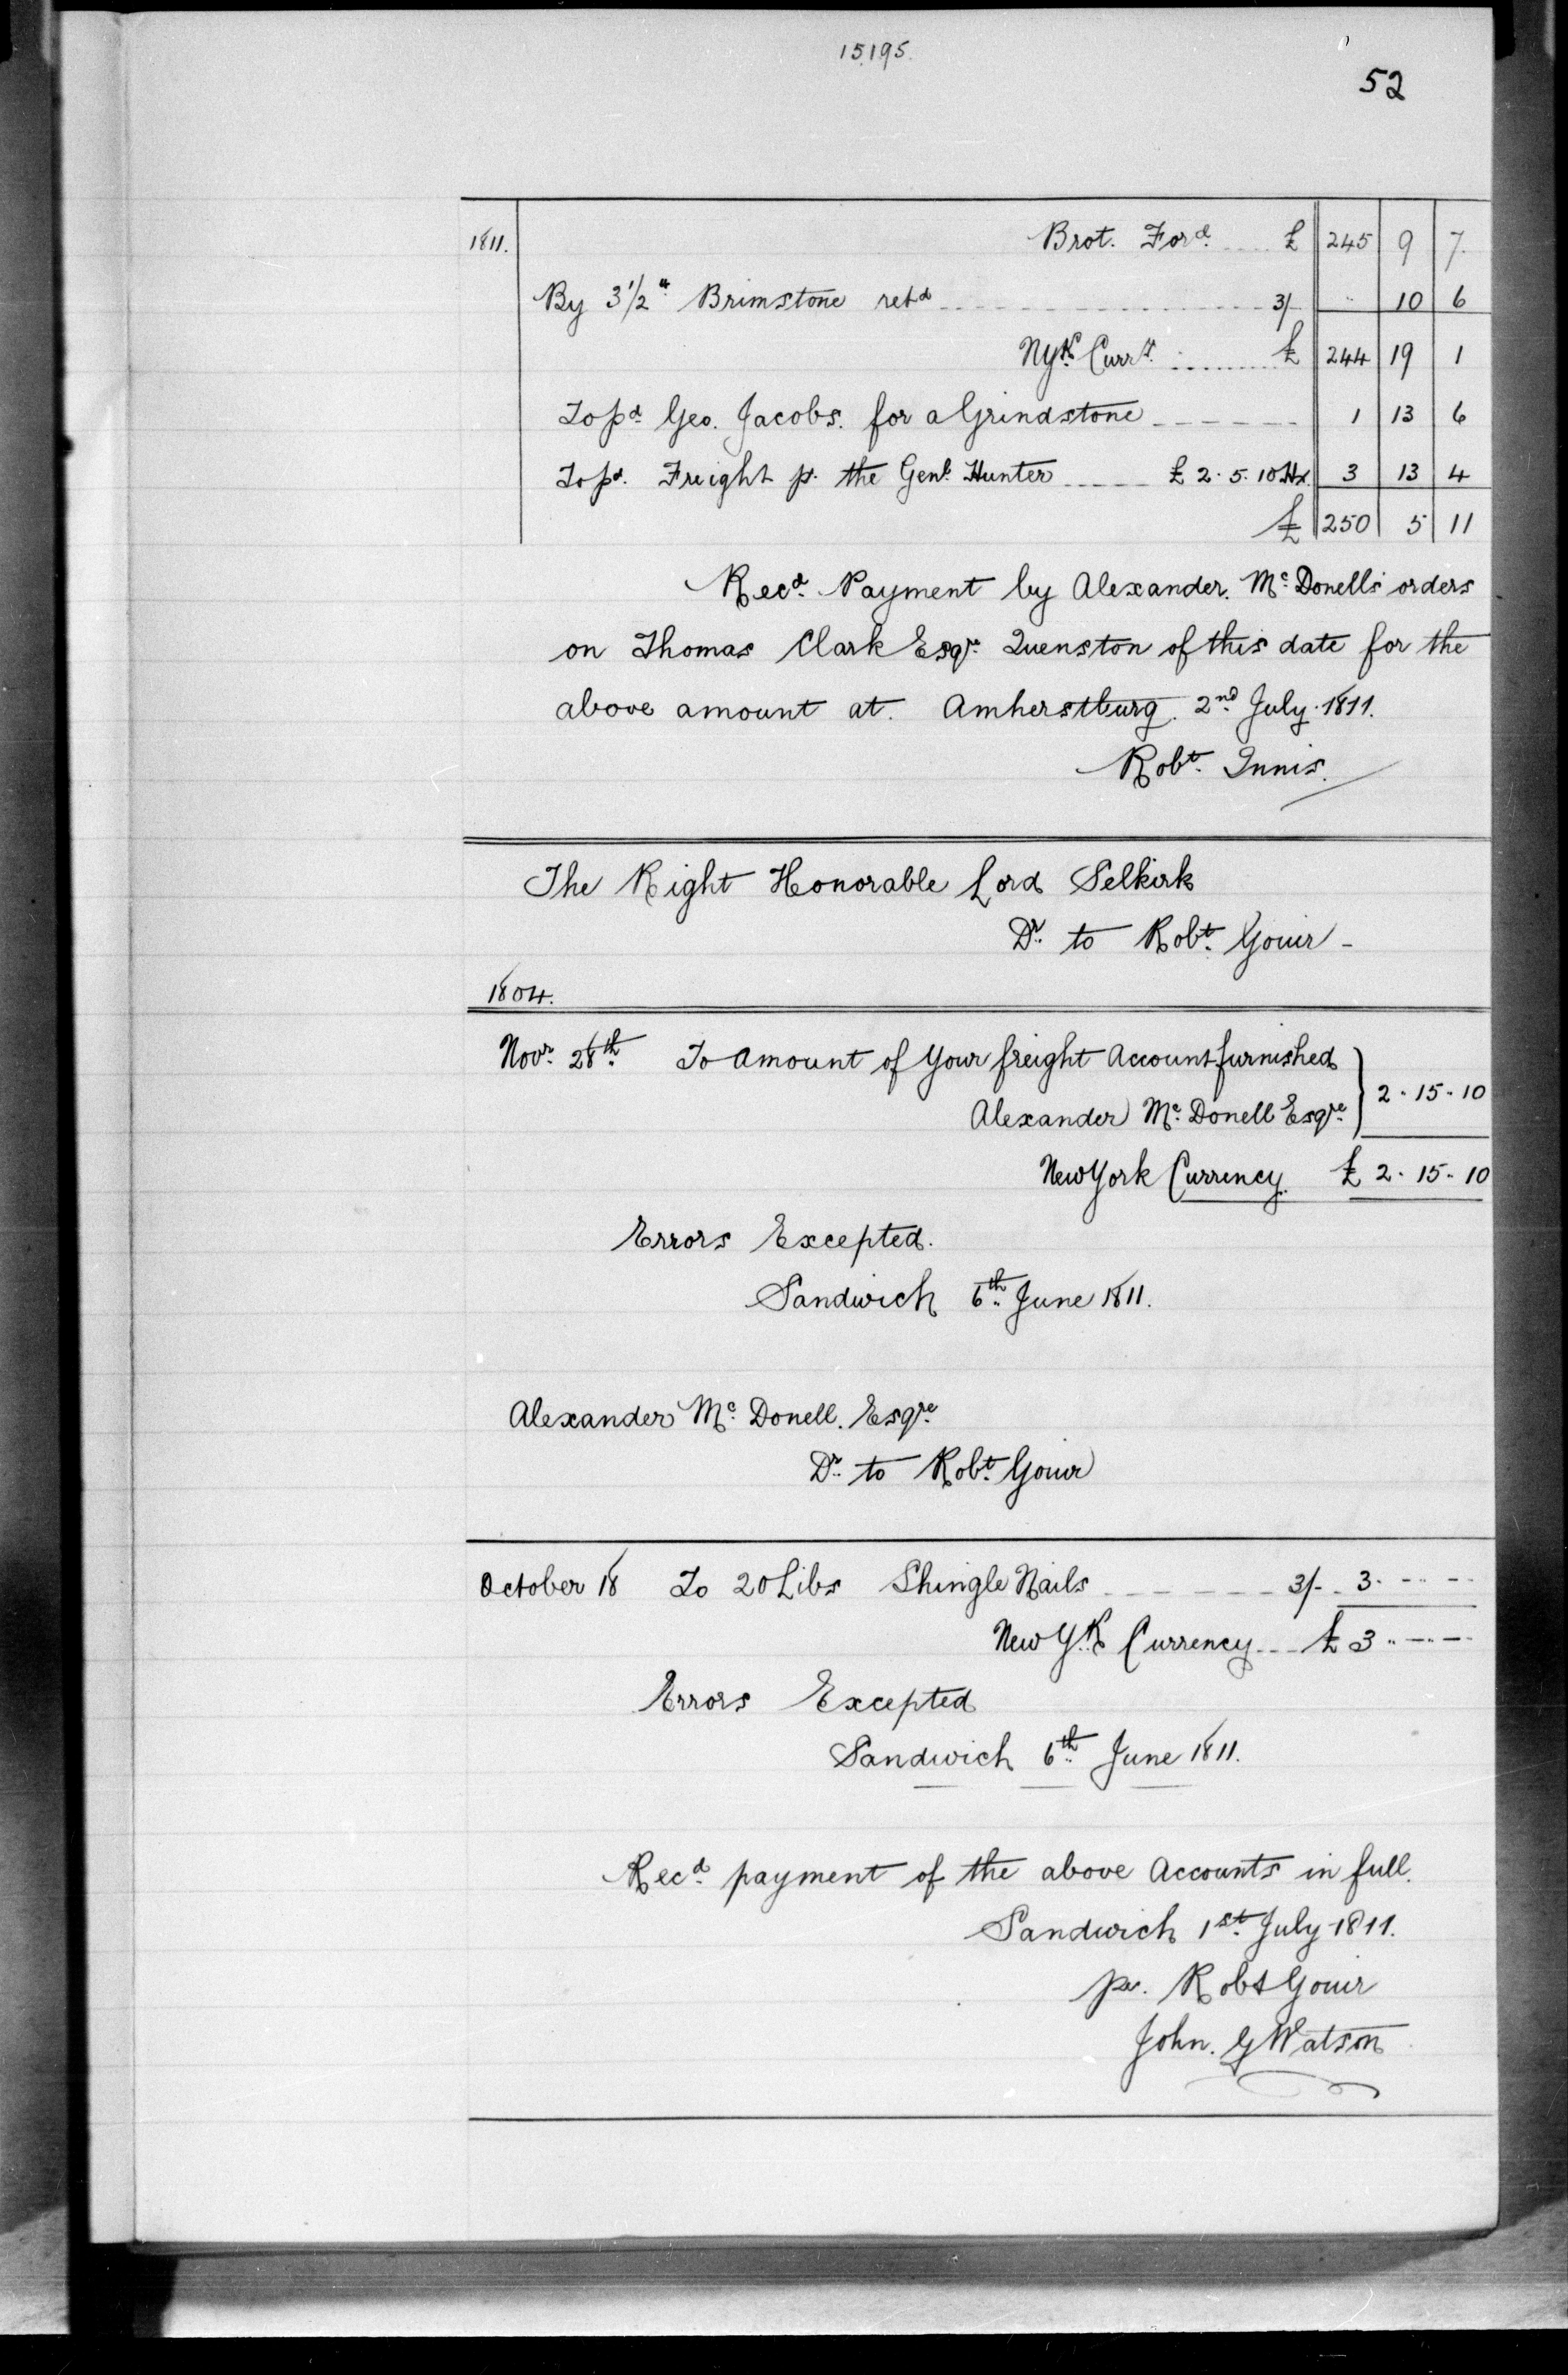 15195.
52
1811. Brot. Ford. £ 245 9 7.
By 3 1/2 " Brimstone retd 3/ " 10 6
NYk Curry. £ 244 19 1
To pd Geo. Jacobs. for a Grindstone 1 13 6
To pd. Freight p. the Genl. Hunter £ 2. 5. 10 Hx. 3 13 4
£ 250 5 11
Recd. Payment by Alexander. Mc. Donells orders
on Thomas Clark Esqr. Quenston of this date for the
above amount at. Amherstburg. 2nd. July. 1811.
Robt. Innis.
The Right Honorable Lord Selkirk
Dr. to Robt. Gouir -
1804.
Novr. 28th. To Amount of Your freight Account furnished
Alexander Mc. Donell Esqre. } 2 - 15 - 10
New York Currency. £ 2 - 15 - 10
Errors Excepted.
Sandwich 6th. June 1811.
Alexander Mc. Donell. Esqre.
Dr. to Robt. Gouir
October 18 To 20 Libs Shingle Nails 3/- 3. -- --
New Y.k Currency £ 3 .. -- --
Errors Excepted
Sandwich 6th. June 1811.
Recd. payment of the above Accounts in full.
Sandwich 1st. July 1811.
pr. Robt Gouir
John. G Watson